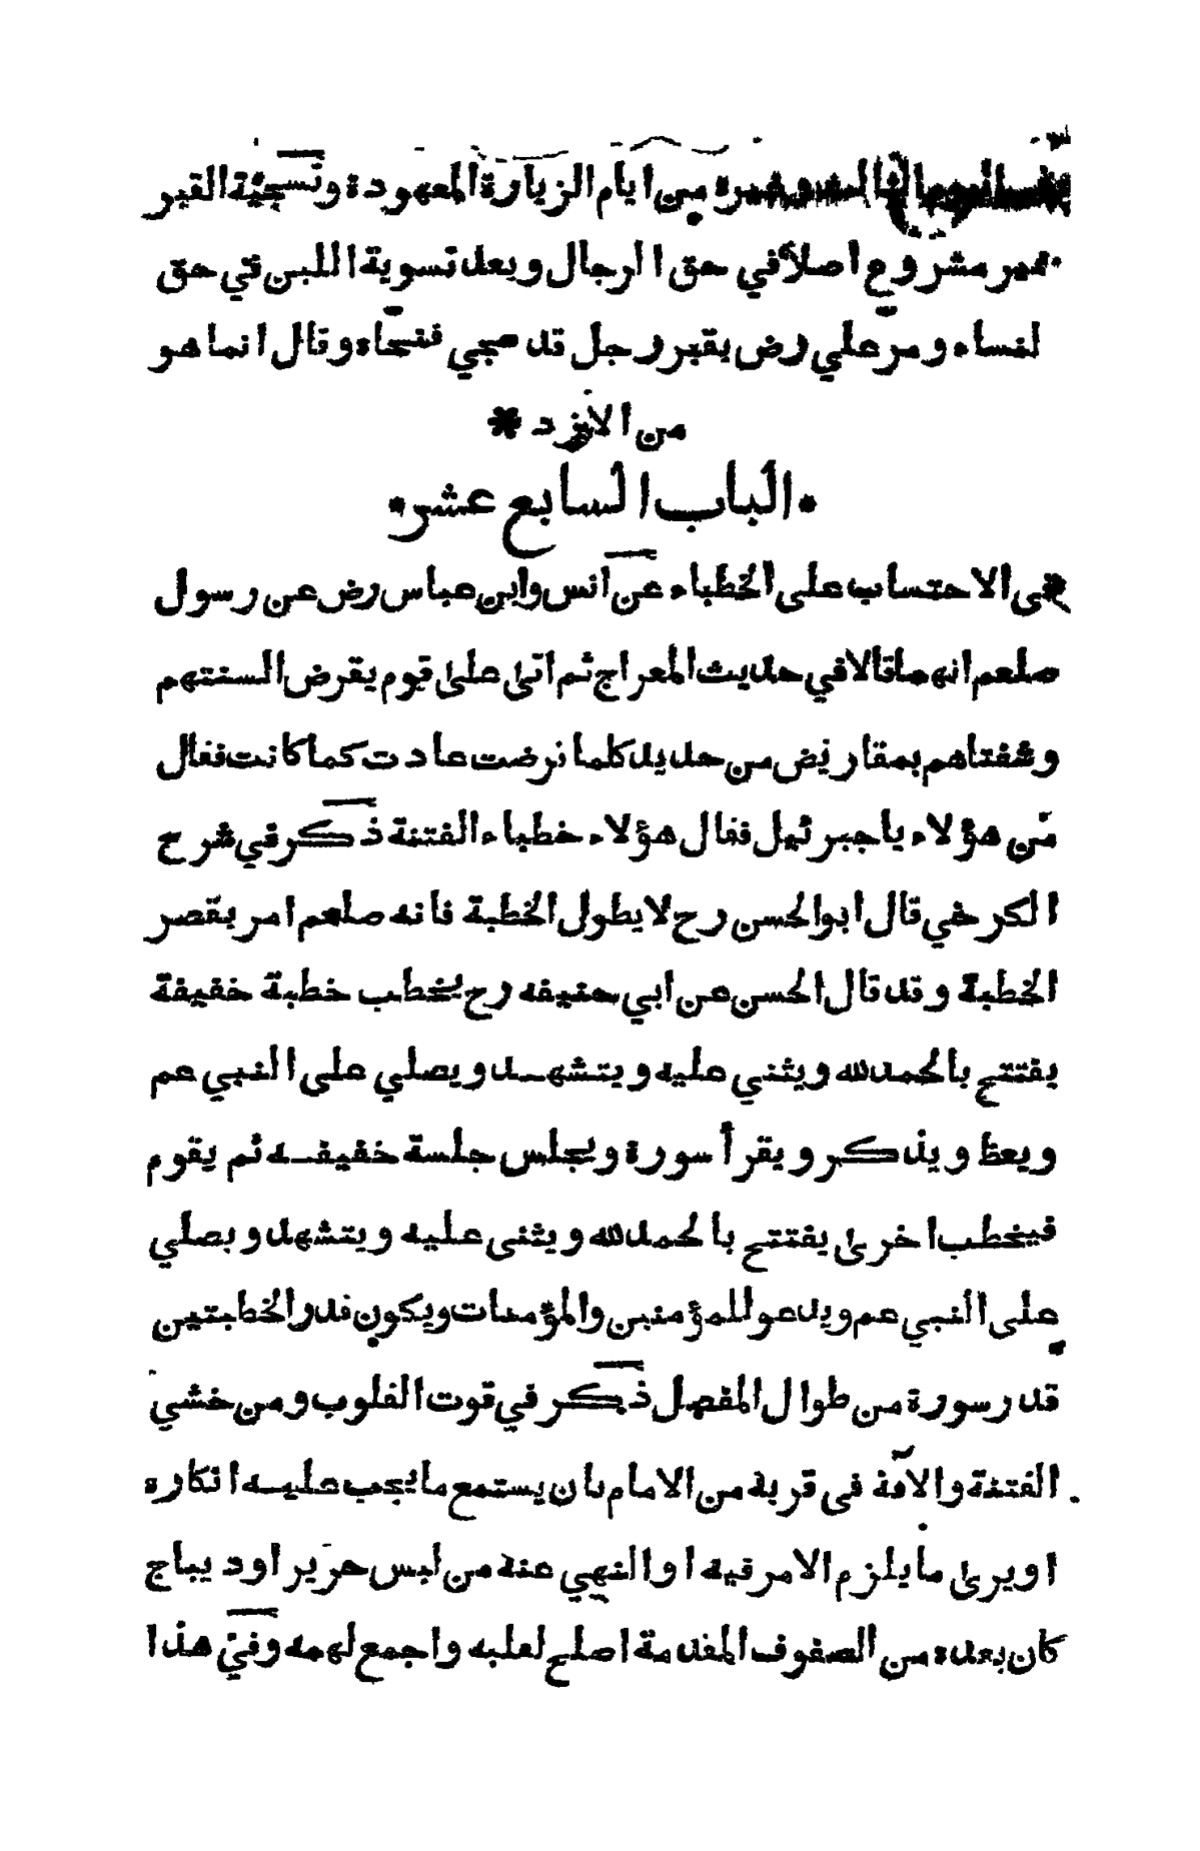 وغيره من ايام الزيارة المعهودة وتسجية القبر
غير مشروع اصلا في حق الرجال وبعد تسوية اللبن في حق
لنساء ومرّ علي رض بقبر رجل قد سجي فنحّاه وقال انما هو
من الا
* الباب السابع عشر *
فى الاحتساب على الخطباء عن انس وابن عباس رض عن رسول
صلعم انهما قالا في حديث المعراج ثم اتىٰ علىٰ قوم يقرض السنتهم
وشفتاهم بمقاريض من حديد كلما قرضت عادت كما كانت فقال
مَن هؤلاء يا جبرئيل فقال هؤلاء خطباء الفتنة ذكر في شرح
الكرخي قال ابوالحسن رح لا يطول الخطبة فانه صلعم امر بقصر
الخطبة وقد قال الحسن عن ابي حنيفه رح يخطب خطبة خفيفة
يفتتح بالحمدلله ويثني عليه ويتشهد ويصلي على النبي عم
ويعظ ويذكر ويقرأ سورة ويجلس جلسة خفيفه ثم يقوم
فيخطب اخرىٰ يفتتح بالحمدلله ويثنى عليه ويتشهد ويصلي
على النبي عم ويدعو للمؤمنين والمؤمنات ويكون قدر الخطبتين
قدر سورة من طوال المفصل ذكر في قوت القلوب ومن خشي
الفتنة والآفة فى قربة من الامام بان يستمع ما يجب عليه انكاره
اويرىٰ ما يلزم الامر فيه او النهي عنه من لبس حرير او ديباج
كان بعده من الصفوف المقدمة اصلح لقلبه واجمع لهمه وفي هذا